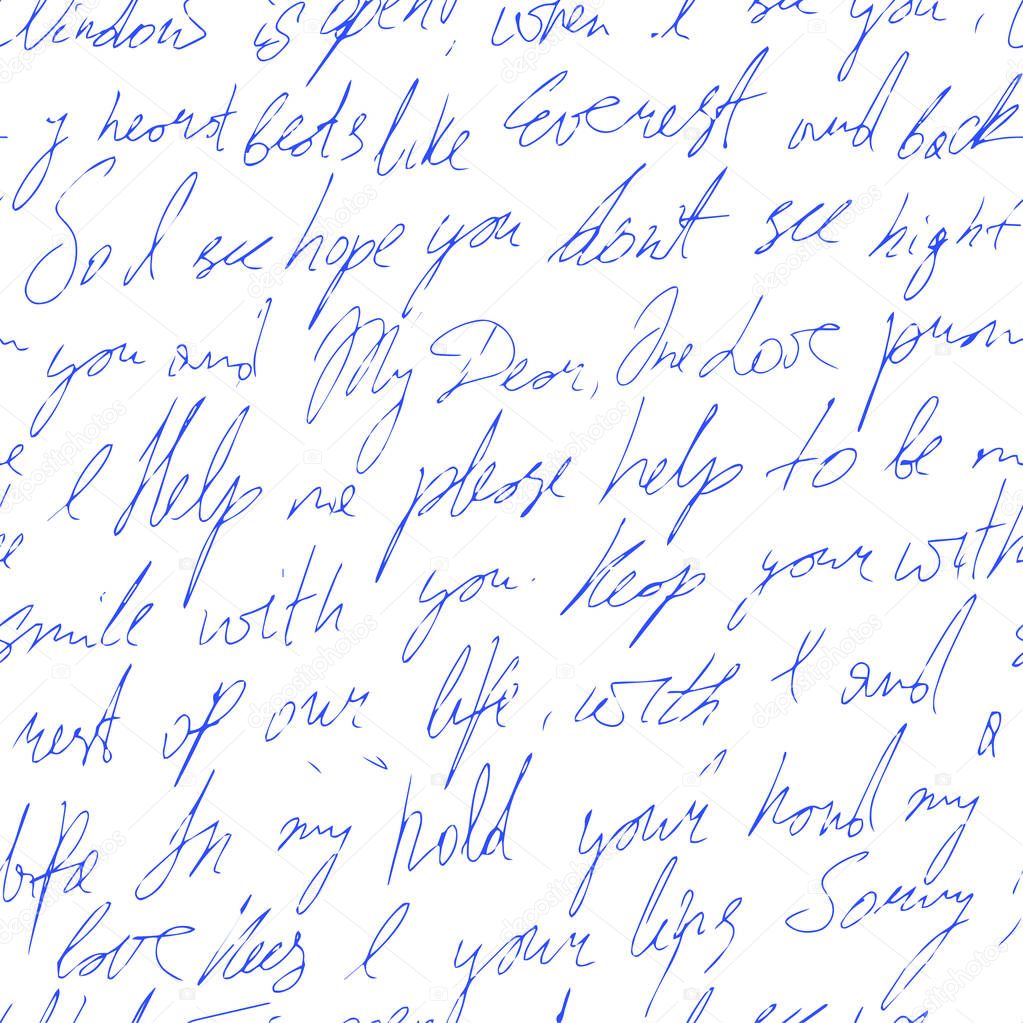 Windows is open, when I see you,
y heart beats like Everest and back
So I see hope you don't see night
you and My Dear, One Love
I Help me please help to be
smile with you. Keep your with
rest of our life, with I and a
life In my hold your hand my
love kiss I your lips Sorry